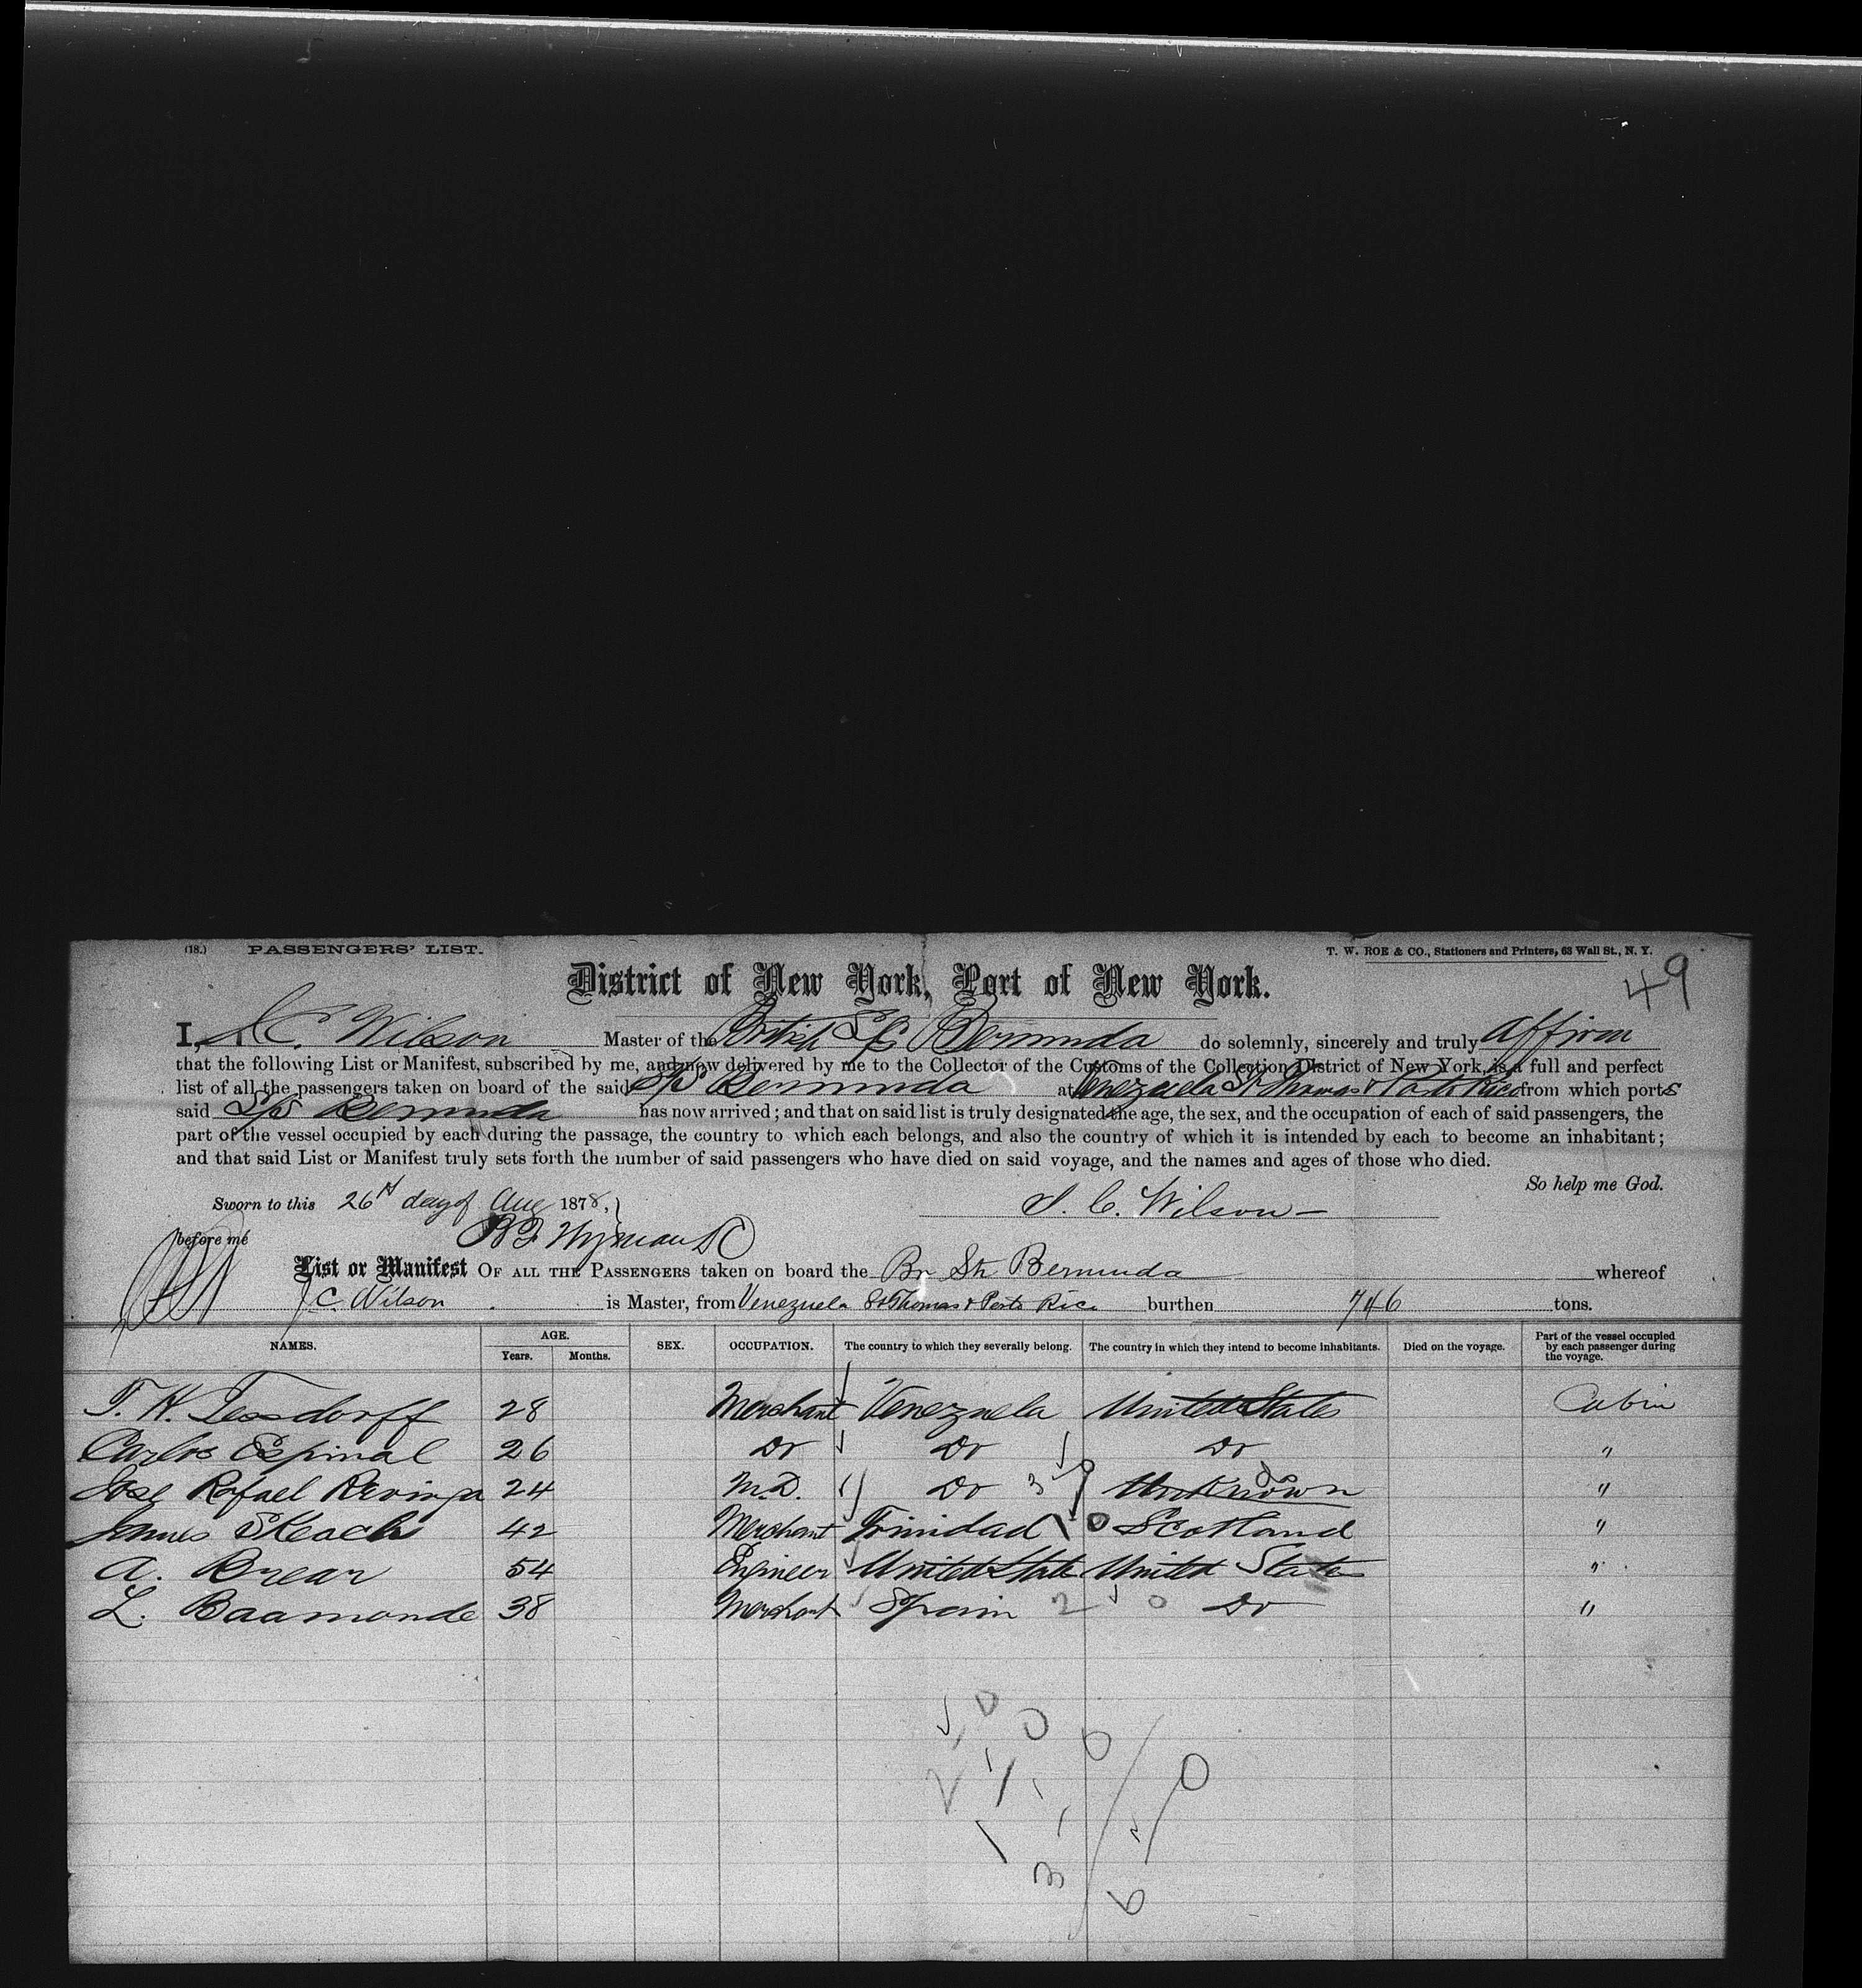 (18.) PASSENGERS' LIST. T. W. ROE & CO., Stationers and Printers, 63 Wall St., N. Y.
49
District of New York, Port of New York.
I, C. Wilson Master of the British Bermuda do solemnly, sincerely and truly affirm
that the following List or Manifest, subscribed by me, and now delivered by me to the Collector of the Customs of the Collection District of New York, is a full and perfect
list of all the passengers taken on board of the said S/S Bermuda at Venezuela St Thomas & Porto Rico from which ports
said S/S Bermuda has now arrived; and that on said list is truly designated the age, the sex, and the occupation of each of said passengers, the
part of the vessel occupied by each during the passage, the country to which each belongs, and also the country of which it is intended by each to become an inhabitant;
and that said List or Manifest truly sets forth the number of said passengers who have died on said voyage, and the names and ages of those who died.
So help me God.
Sworn to this 26th day of Aug 1878,
J. C. Wilson
before me
List or Manifest OF ALL THE PASSENGERS taken on board the Br Str Bermuda whereof
J C Wilson is Master, from Venezuela St Thomas & Porto Rico burthen 746 tons.
NAMES. AGE. Years. Months. SEX. OCCUPATION. The country to which they severally belong. The country in which they intend to become inhabitants. Died on the voyage. Part of the vessel occupied by each passenger during the voyage.
T. H. Tesdorff 28 Merchant Venezuela United States Cabin
Carlos Espinal 26 Do Do Do "
Jose Rafael Revenga 24 M.D. Do 3 Unknown "
James Skeoch 42 Merchant Trinidad 0 Scotland "
A. Brear 54 Engineer United State United States "
L. Baamonde 38 Merchant Spain 2 0 Do "